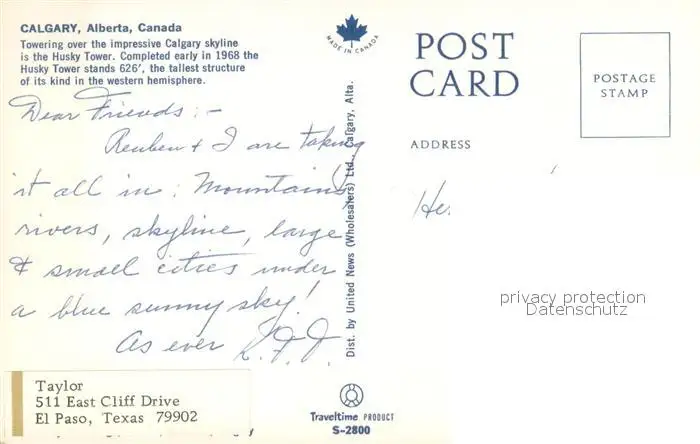 CALGARY, Alberta, Canada
Towering over the impressive Calgary skyline
is the Husky Tower. Completed early in 1968 the
Husky Tower stands 626', the tallest structure
of its kind in the western hemisphere.
Dear Friends:-
Reuben & I are taking
it all in: Mountains,
rivers, skyline, large
& small cities under
a blue sunny sky!
As ever
Taylor
511 East Cliff Drive
El Paso, Texas 79902
MADE IN CANADA
Dist. by United News (Wholesalers) Ltd., Calgary, Alta.
Traveltime PRODUCT
S-2800
POST
CARD
POSTAGE
STAMP
ADDRESS
He.
privacy protection
Datenschutz